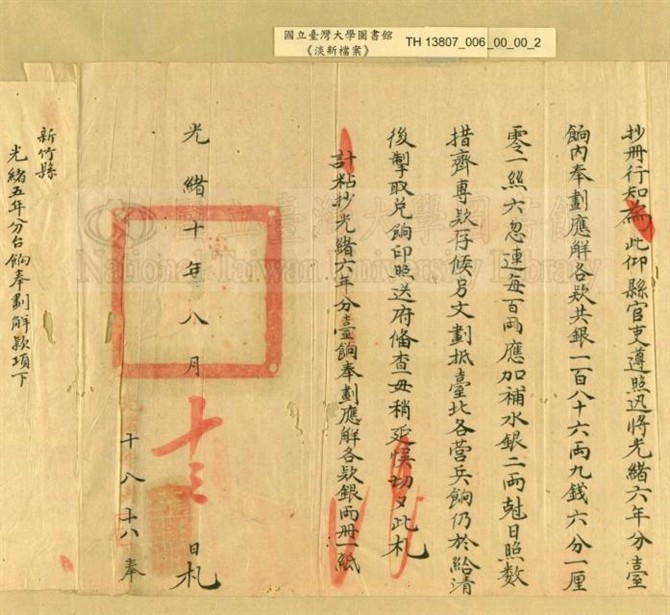 國立臺灣大學圖書館
《淡新檔案》
TH 13807_006_00_00_2
抄冊行知為此仰縣官吏遵照迅將光緒六年分臺
餉內奉劃應解各款共銀一百八十六兩九錢六分一厘
零一絲六忽連每百兩應加補水銀二兩尅日照數
措齊專款存候另文劃抵臺北各營兵餉仍於給清
後掣取兌餉印照送府俻查毋稍延悞切又此札
計粘抄光緒六年分臺餉奉劃應解各款銀兩冊一紙
光緒十年八月十三日札
十八 十八 奉
新竹縣
光緒五年分台餉奉劃解款項下
National Taiwan University Library